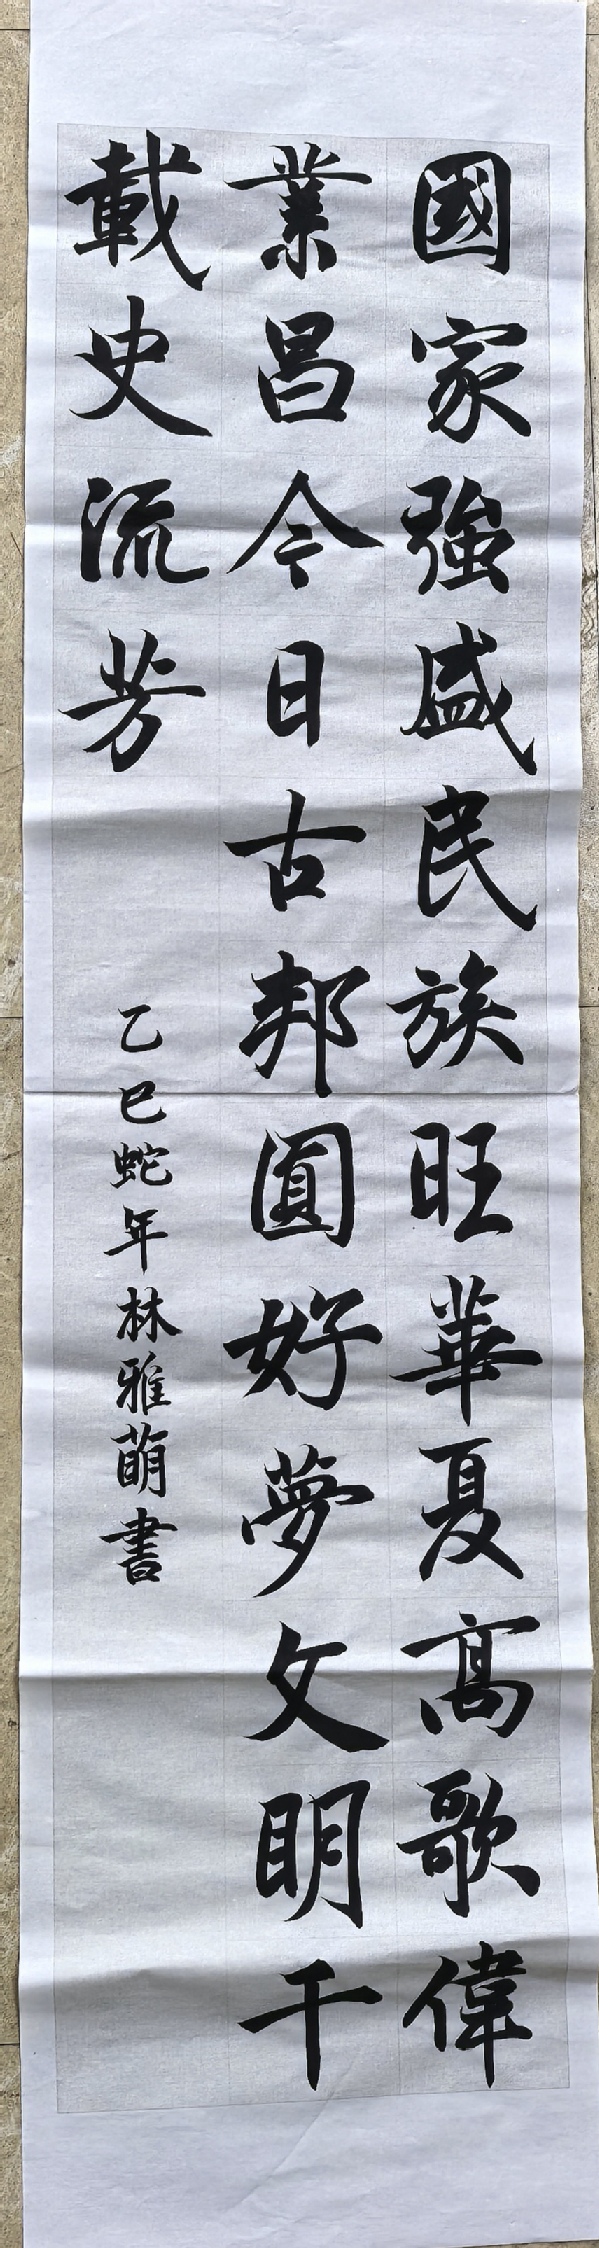 國家強盛民族旺華夏高歌偉
業昌今日古邦圓好夢文明千
載史流芳
乙巳蛇年林雅萌書